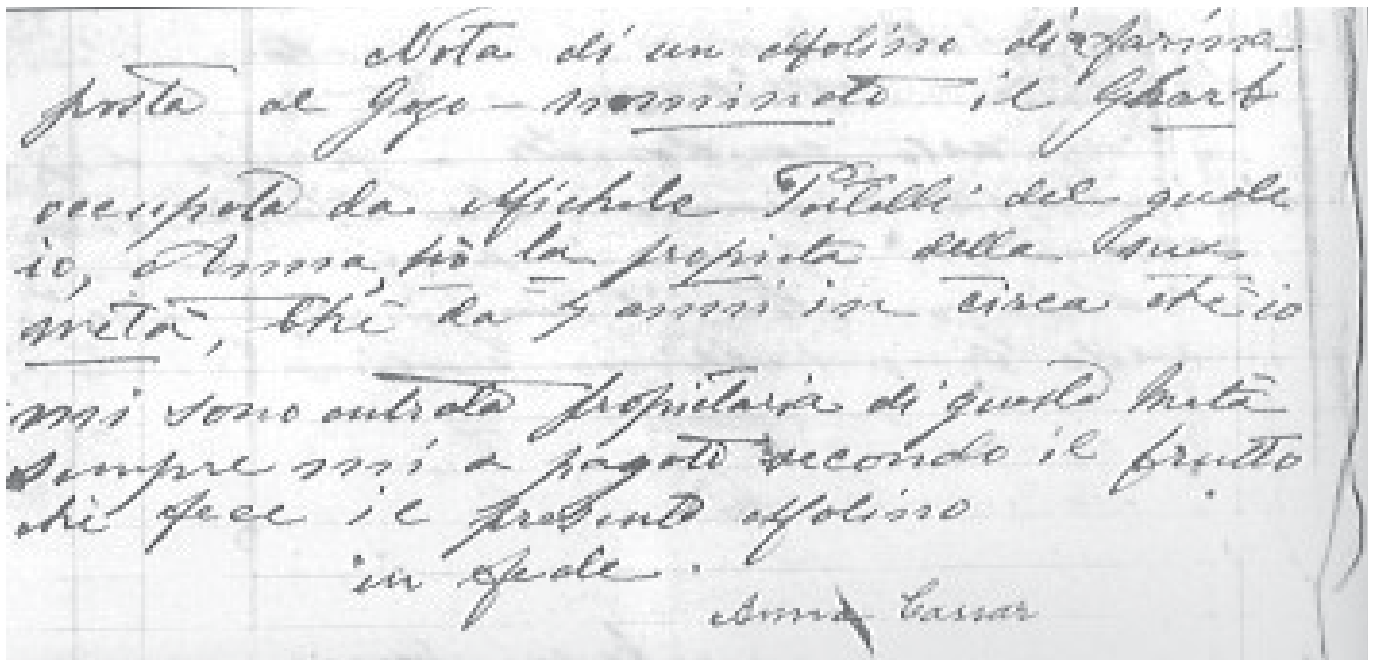 Nota di un Molino di farina
posta al Gozo - nominato il Gharb
occupata da Michele Portelli del quale
io, Anna, hò la propieta della sua
metà, chè da 5 anni in circa chè io
mi sono entrata propietaria di questa metà
sempre mi a pagato secondo il frutto
chè fece il presento Molino
in fede.
Anna Cassar